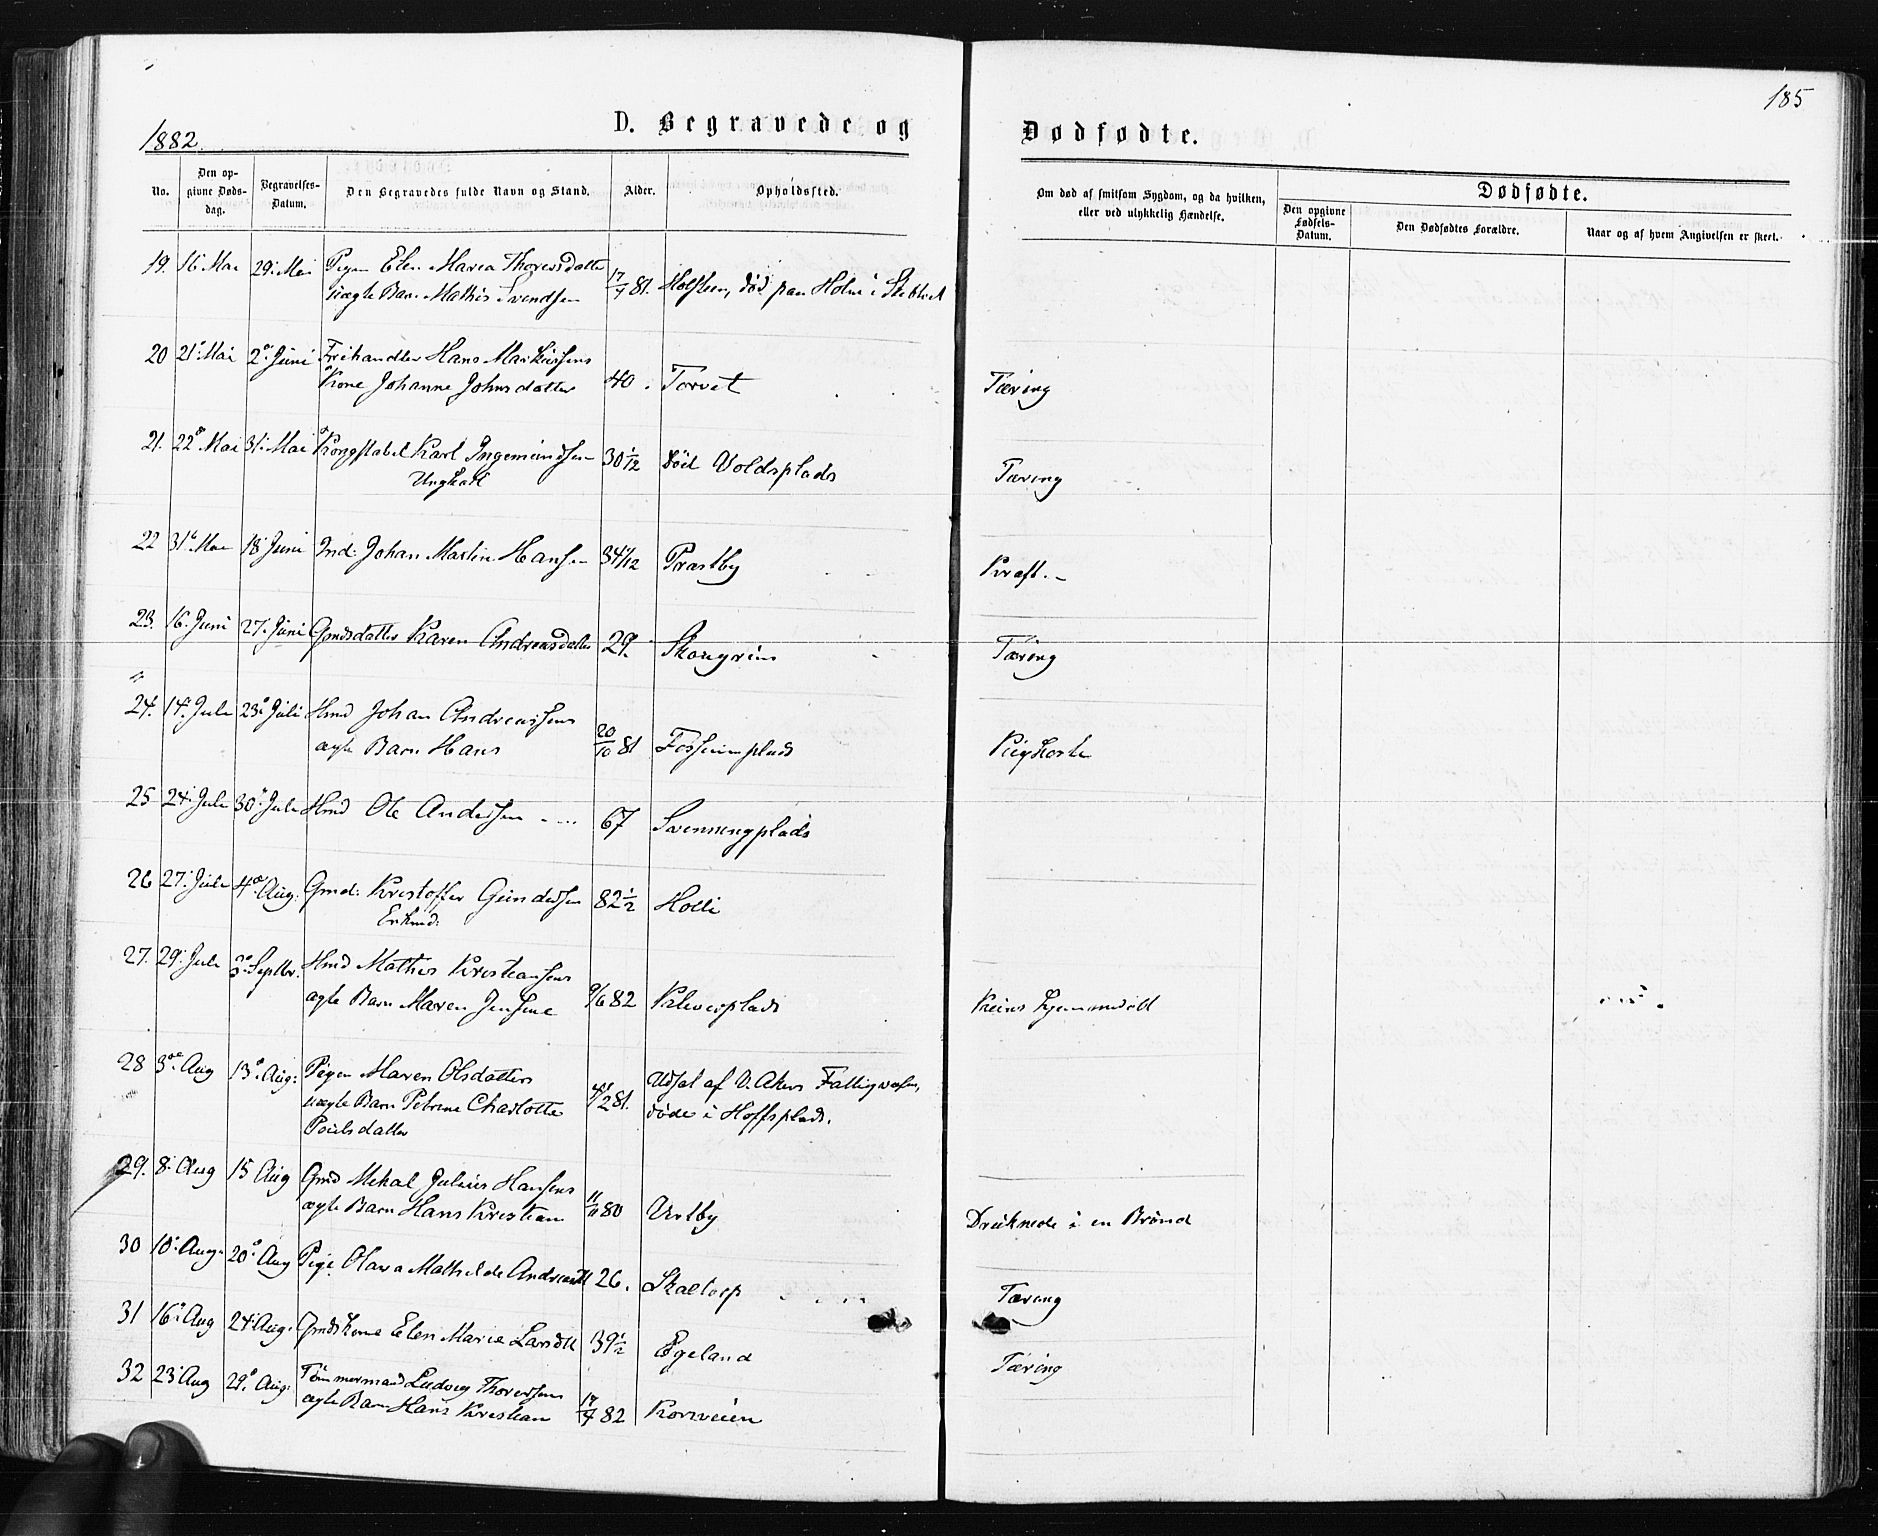 185
1882.
D. Begravede og
Dødfødte.
No.
Den op-
givne Døds-
dag.
Begravelses-
Datum.
Den Begravedes fulde Navn og Stand.
Alder.
Opholdssted.
Om død af smitsom Sygdom, og da hvilken,
eller ved ulykkelig Hændelse.
Dødfødte.
Den opgivne
Fødsels-
Datum.
Den Dødfødtes Forældre.
Naar og af hvem Angivelsen er skeet.
19. 16 Mai 29. Mai Pigen Elen Maria Thoresdatter
uægte Barn Mathis Svendsen 17/7 81. Holsteen, død paa Holm i
20 21 Mai 2. Juni Frihandler Hans Markussens
Kone Johanne Johnsdatter 40. Torvet Tæring
21. 22 Mai 31. Mai Kongstabel Karl Ingemundsen 30 1/12 Voldsplads Tæring
Ungkarl
22 31 Mai 18 Juni Ind: Johan Martin Hansen 34 Prestby Kræft.
23. 16. Juni 27. Juni Gmdsdatter Karen Andreasdatter 29. Skougrim Tæring
24. 14. Juli 23 Juli Hmd Johan Andreassens
ægte Barn Hans 20/10 81 Fossumplads Kighoste
25 24. Juli 30. Juli Hmd Ole Andersen 67 Svenningplads
26 27. Juli 4 Aug: Gmd: Kristoffer Gundersen 82 1/2 Holli
Enkmd:
27. 29. Juli 3. Septbr. Hmd Mathis Kristiansens
ægte Barn Maren Jensine 9/6 82 Kalvesplads
28 3 Aug 13. Aug: Pigen Maren Olsdatters
uægte Barn Petrine Charlotte 81. Udsat af V. Akers Fattigvæsen,
Poulsdatter døde i Hoffsplads.
29. 8. Aug 15 Aug Gmd Mikal Julius Hansens
ægte Barn Hans Kristian 80 Vestby Druknede i en Brønd
30 10. Aug. 20. Aug Pige Olava Mathilde Andreasdt 26. Skaltorp Tæring
31 16. Aug 24. Aug. Gmdskone Elen Marie Larsdtt 39 1/2 Egeland Tæring
32 23 Aug 29. Aug: Tømmermand Ludvig Thoresens
ægte Barn Hans Kristian 17/4 82 Korsveien